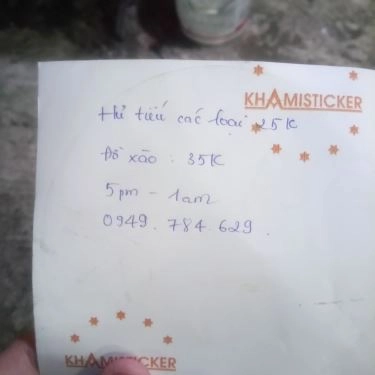 KHAMISTICKER
Hủ tiếu các loại 25K
Đồ xào : 35K
5pm - 1am
0949.784.629.
KHAMISTICKER